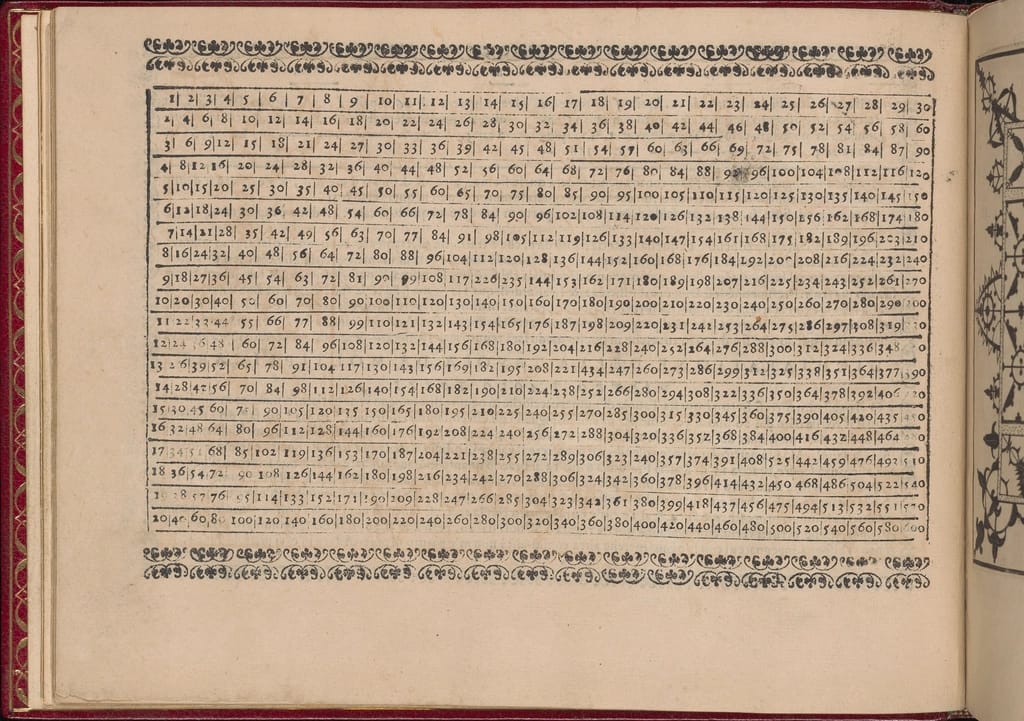 1| 2| 3| 4| 5| 6| 7| 8| 9| 10| 11| 12| 13| 14| 15| 16| 17| 18| 19| 20| 21| 22| 23| 24| 25| 26| 27| 28| 29| 30
2| 4| 6| 8| 10| 12| 14| 16| 18| 20| 22| 24| 26| 28| 30| 32| 34| 36| 38| 40| 42| 44| 46| 48| 50| 52| 54| 56| 58| 60
3| 6| 9|12| 15| 18| 21| 24| 27| 30| 33| 36| 39| 42| 45| 48| 51| 54| 57| 60| 63| 66| 69| 72| 75| 78| 81| 84| 87| 90
4| 8|12|16| 20| 24| 28| 32| 36| 40| 44| 48| 52| 56| 60| 64| 68| 72| 76| 80| 84| 88| 92| 96|100|104|108|112|116|120
5|10|15|20| 25| 30| 35| 40| 45| 50| 55| 60| 65| 70| 75| 80| 85| 90| 95|100|105|110|115|120|125|130|135|140|145|150
6|12|18|24| 30| 36| 42| 48| 54| 60| 66| 72| 78| 84| 90| 96|102|108|114|120|126|132|138|144|150|156|162|168|174|180
7|14|21|28| 35| 42| 49| 56| 63| 70| 77| 84| 91| 98|105|112|119|126|133|140|147|154|161|168|175|182|189|196|203|210
8|16|24|32| 40| 48| 56| 64| 72| 80| 88| 96|104|112|120|128|136|144|152|160|168|176|184|192|200|208|216|224|232|240
9|18|27|36| 45| 54| 63| 72| 81| 90| 99|108|117|226|235|144|153|162|171|180|189|198|207|216|225|234|243|252|261|270
10|20|30|40| 50| 60| 70| 80| 90|100|110|120|130|140|150|160|170|180|190|200|210|220|230|240|250|260|270|280|290|300
11|22|33|44| 55| 66| 77| 88| 99|110|121|132|143|154|165|176|187|198|209|220|231|242|253|264|275|286|297|308|319
12|24|36|48| 60| 72| 84| 96|108|120|132|144|156|168|180|192|204|216|228|240|252|264|276|288|300|312|324|336|348
13|26|39|52| 65| 78| 91|104|117|130|143|156|169|182|195|208|221|434|247|260|273|286|299|312|325|338|351|364|377|390
14|28|42|56| 70| 84| 98|112|126|140|154|168|182|190|210|224|238|252|266|280|294|308|322|336|350|364|378|392|406
15|30|45|60| 75| 90|105|120|135|150|165|180|195|210|225|240|255|270|285|300|315|330|345|360|375|390|405|420|435
16|32|48|64| 80| 96|112|128|144|160|176|192|208|224|240|256|272|288|304|320|336|352|368|384|400|416|432|448|464
17|34|51|68| 85|102|119|136|153|170|187|204|221|238|255|272|289|306|323|240|357|374|391|408|425|442|459|476|493|510
18|36|54|72| 90|108|126|144|162|180|198|216|234|242|270|288|306|324|342|360|378|396|414|432|450|468|486|504|522|540
57|76| 95|114|133|152|171|190|209|228|247|266|285|304|323|342|361|380|399|418|437|456|475|494|513|532|551|570
20|40|60|80|100|120|140|160|180|200|220|240|260|280|300|320|340|360|380|400|420|440|460|480|500|520|540|560|580|600